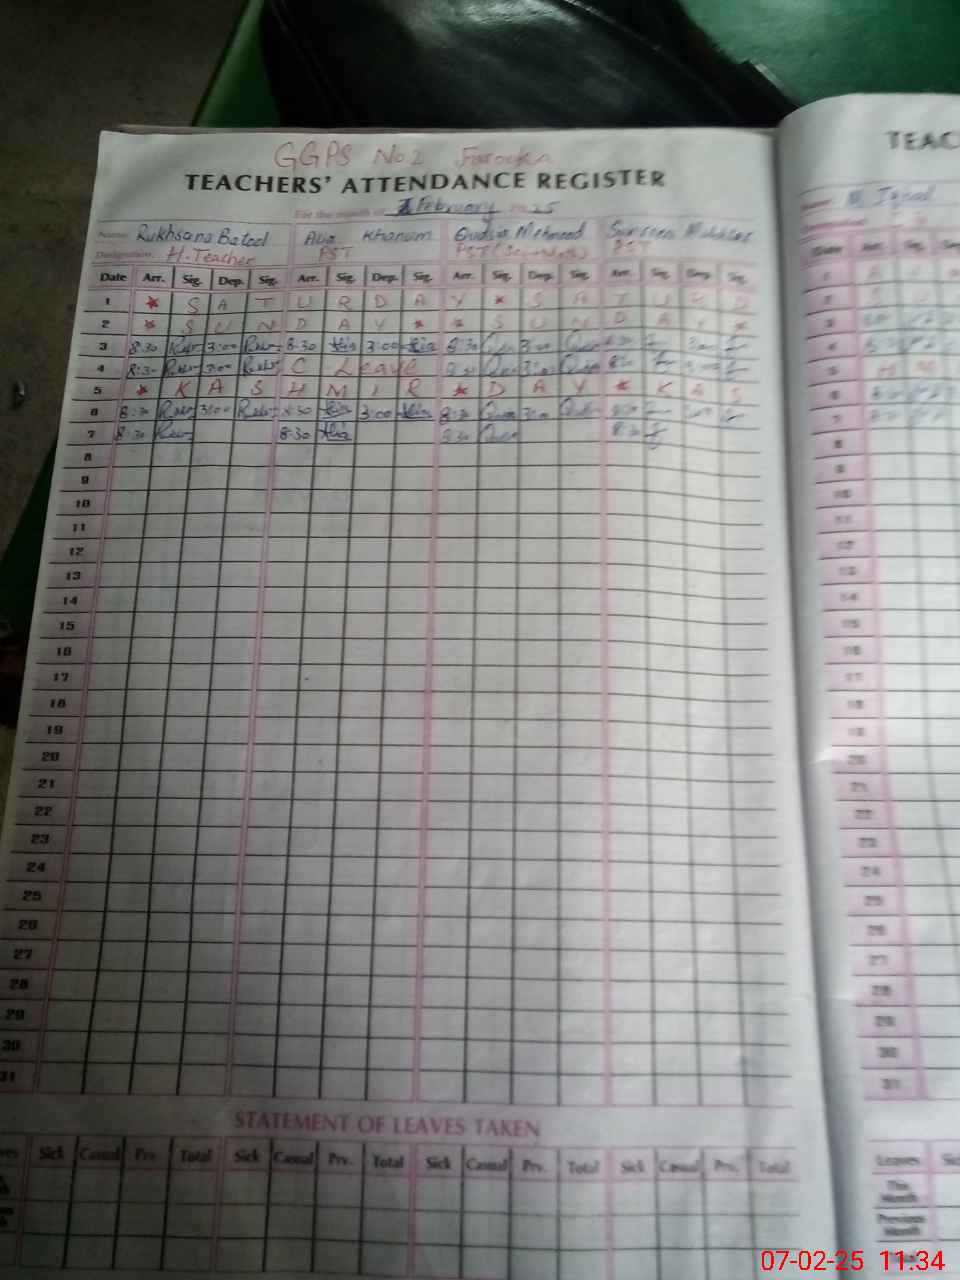 GGPS No 2 Farooka
TEACHERS' ATTENDANCE REGISTER
For the month of February 2025
Name: Rukhsana Batool Alia Khanum Qudsia Mehmood
Designation: H-Teacher PST PST (Sci-Math) PST
Date Arr. Sig. Dep. Sig. Arr. Sig. Dep. Sig. Arr. Sig. Dep. Sig. Arr. Sig. Dep. Sig.
1 * S A T U R D A Y * S A T U R D
2 * S U N D A Y * * S U N D A Y *
3 8:30 3:00 8:30 3:00 8:30 3:00 8:30 3:00
4 8:30 3:00 C Leave 8:30 3:00 8:30 3:00
5 * K A S H M I R * D A Y * K A S
6 8:30 3:00 8:30 3:00 8:30 3:00 8:30 3:00
7 8:30 8:30 8:30 8:30
8
9
10
11
12
13
14
15
16
17
18
19
20
21
22
23
24
25
26
27
28
29
30
31
STATEMENT OF LEAVES TAKEN
Sick Casual Prv. Total Sick Casual Prv. Total Sick Casual Prv. Total Sick Casual Prv. Total
TEAC
M Iqbal
Date Arr. Sig.
1
2
3
4
5
6
7
8
9
10
11
12
13
14
15
16
17
18
19
20
21
22
23
24
25
26
27
28
29
30
31
Leaves Sic
This Month
Previous Month
07-02-25 11:34